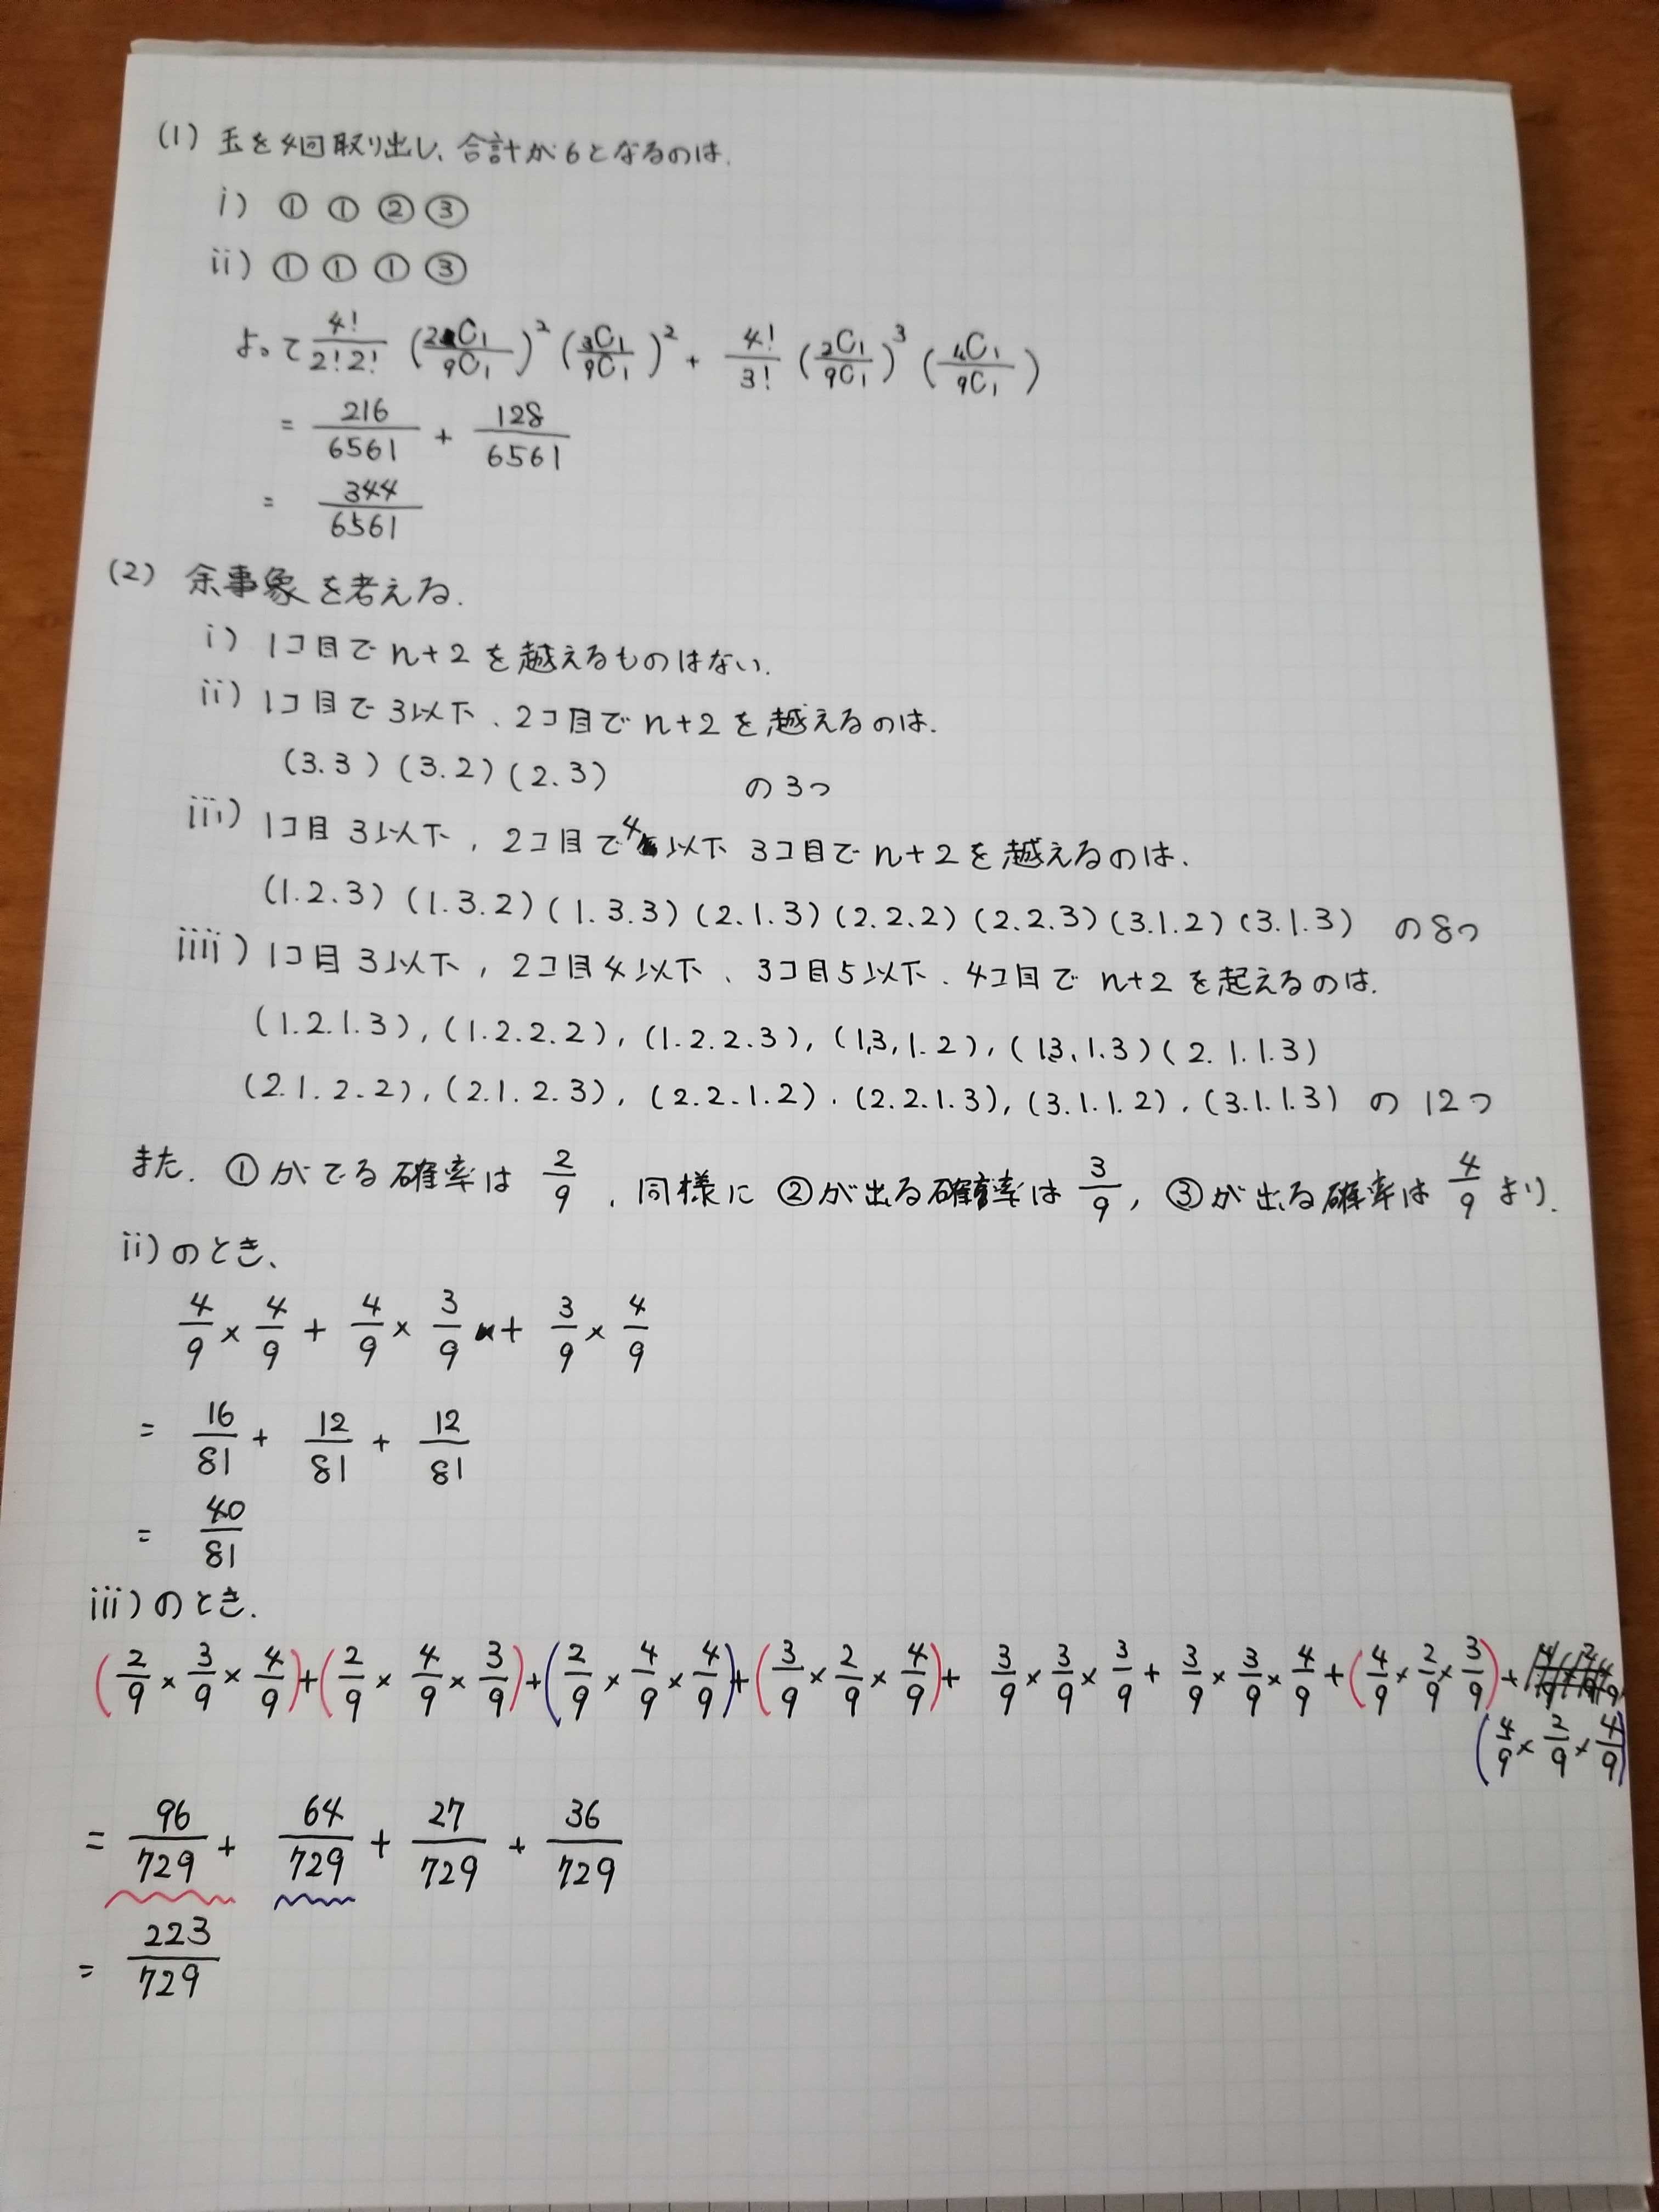 (1) 玉を4回取り出し、合計が6となるのは.
i) ① ① ② ③
ii) ① ① ① ③
よって 4!/2!2! (2C1/9C1)^2 (3C1/9C1)^2 + 4!/3! (2C1/9C1)^3 (4C1/9C1)
= 216/6561 + 128/6561
= 344/6561
(2) 余事象を考える.
i) 1コ目でn+2を越えるものはない.
ii) 1コ目で3以下、2コ目でn+2を越えるのは.
(3.3) (3.2) (2.3) の3つ
iii) 1コ目3以下, 2コ目で4以下 3コ目でn+2を越えるのは.
(1.2.3) (1.3.2) (1.3.3) (2.1.3) (2.2.2) (2.2.3) (3.1.2) (3.1.3) の8つ
iiii) 1コ目3以下, 2コ目4以下、3コ目5以下. 4コ目でn+2を起えるのは.
(1.2.1.3), (1.2.2.2), (1.2.2.3), (1,3,1.2), (1.3.1.3) (2.1.1.3)
(2.1.2.2), (2.1.2.3), (2.2.1.2). (2.2.1.3), (3.1.1.2), (3.1.1.3) の12つ
また. ①がでる確率は 2/9 . 同様に ②が出る確率は 3/9, ③が出る確率は 4/9 より.
ii)のとき、
4/9 × 4/9 + 4/9 × 3/9 + 3/9 × 4/9
= 16/81 + 12/81 + 12/81
= 40/81
iii)のとき.
(2/9 × 3/9 × 4/9) + (2/9 × 4/9 × 3/9) + (2/9 × 4/9 × 4/9) + (3/9 × 2/9 × 4/9) + 3/9 × 3/9 × 3/9 + 3/9 × 3/9 × 4/9 + (4/9 × 2/9 × 3/9) +
(4/9 × 2/9 × 4/9)
= 96/729 + 64/729 + 27/729 + 36/729
= 223/729